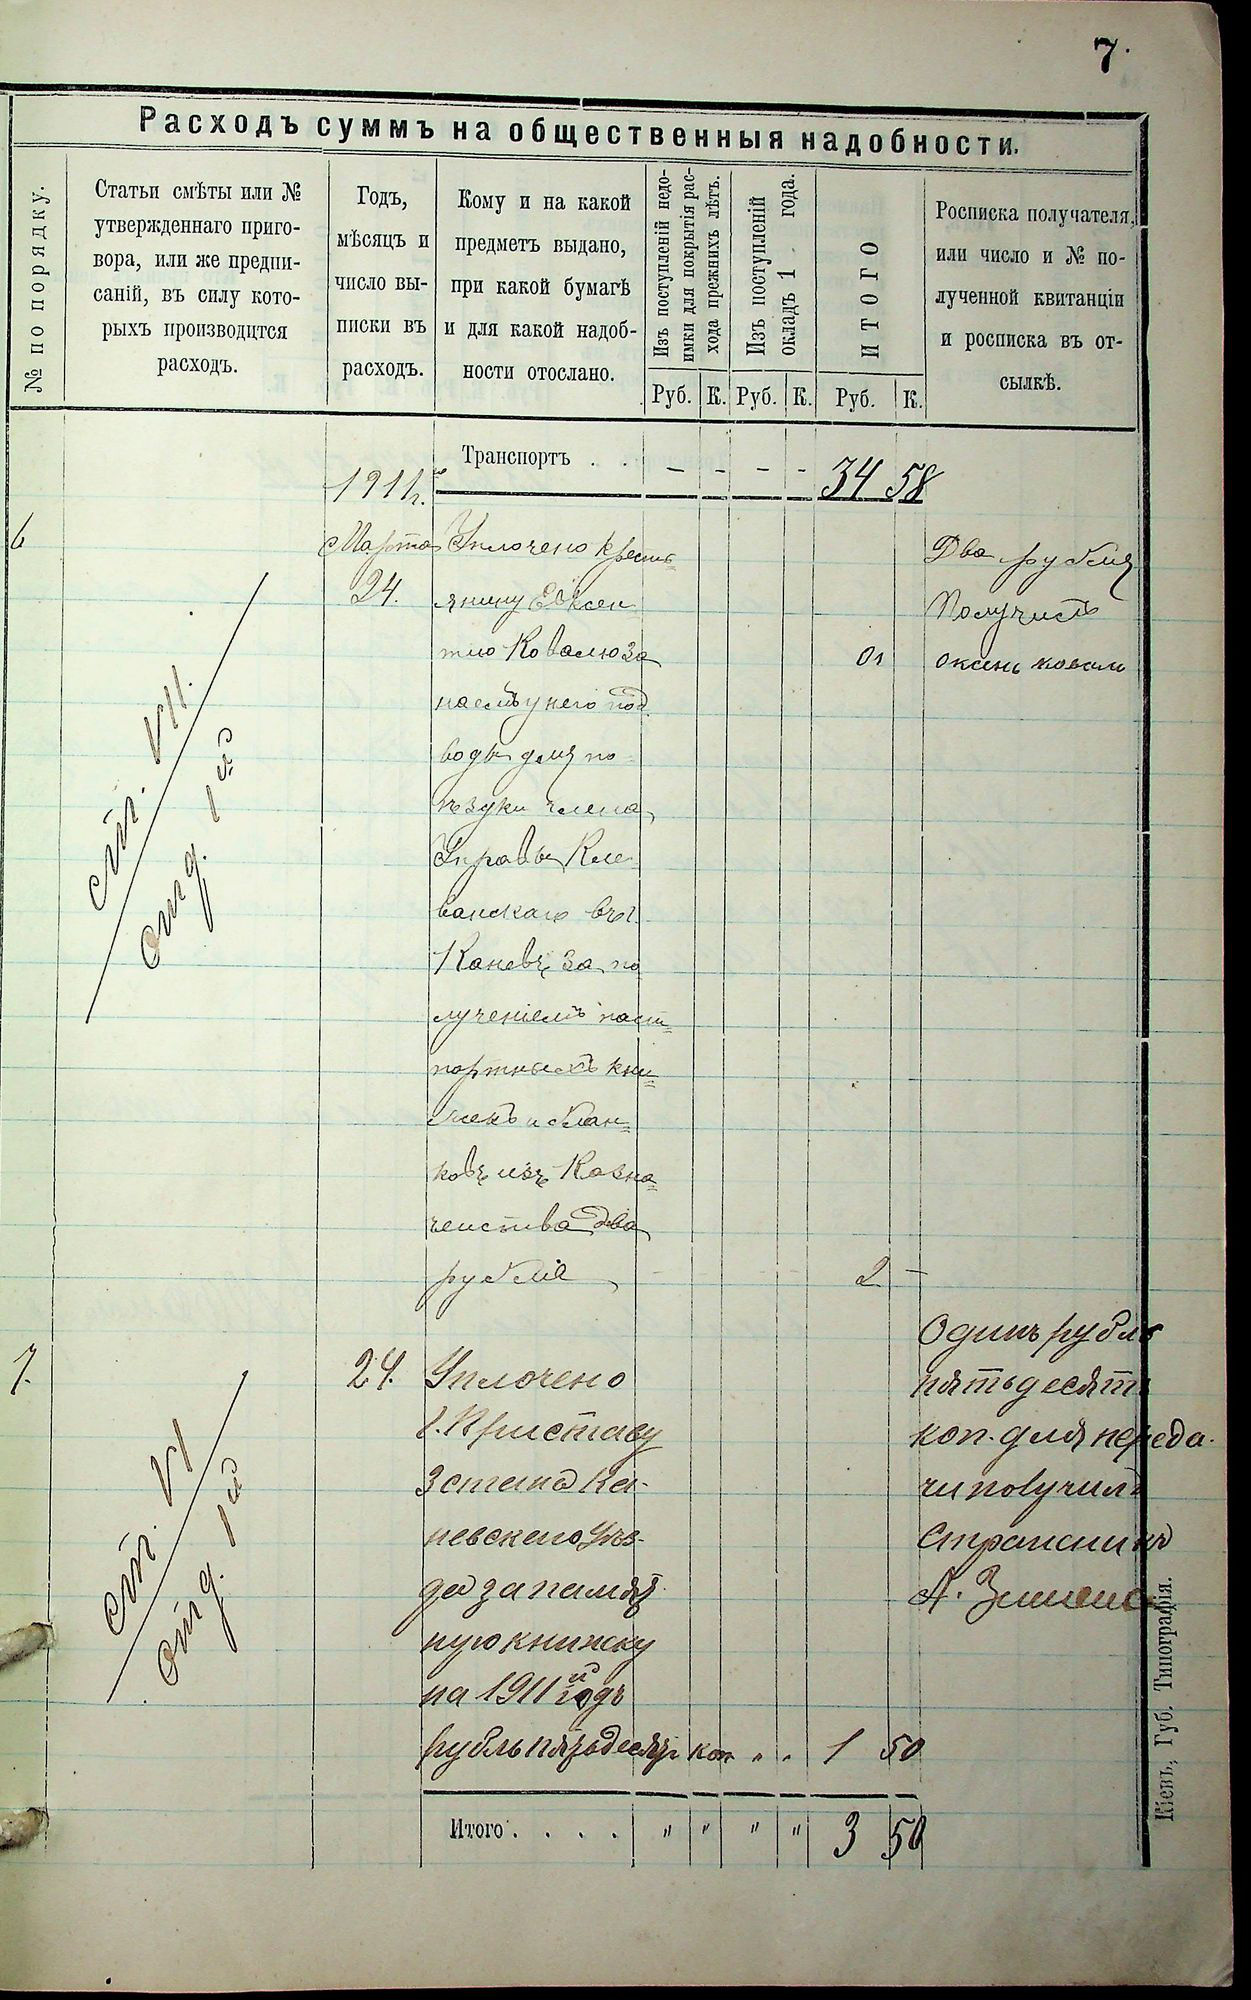 7.
Расходъ суммъ на общественныя надобности.
№ по порядку.
Статьи смѣты или №
утвержденнаго приго-
вора, или же предпи-
саній, въ силу кото-
рыхъ производится
расходъ.
Годъ,
мѣсяцъ и
число вы-
писки въ
расходъ.
Кому и на какой
предметъ выдано,
при какой бумагѣ
и для какой надоб-
ности отослано.
Изъ поступленій недо-
имки для покрытія рас-
хода прежнихъ лѣтъ.
Изъ поступленій
окладъ 1 года.
ИТОГО
Росписка получателя,
или число и № по-
лученной квитанціи
и росписка въ от-
сылкѣ.
Руб. К. Руб. К. Руб. К.
Транспортъ . . - - - - 34 58
1911 г.
6
Марта
24.
ст. VII.
отд. 1й
Уплочено крестья=
янину Евксен
тію Ковалю за
наемъ у него под
воды для по
ѣздки члена
Управы Кле
ванскаго въ г.
Каневъ за по
лученіемъ пас=
портныхъ кни=
жекъ и блан=
ковъ изъ Казна=
чейства два
рубля 2 -
Два рубля
Получилъ
оксень коваль
7.
24.
ст. VI
отд. 1й
Уплочено
г. Приставу
3 стана Ка-
невскаго Уѣз-
да за памят
ную книжку
на 1911й годъ
рубль пятьдесят коп " " 1 50
Одинъ рубль
пятьдесятъ
коп. для переда-
чи получилъ
Стражникъ
А.
Итого . . . . " " " " 3 50
Кіевъ, Губ. Типографія.